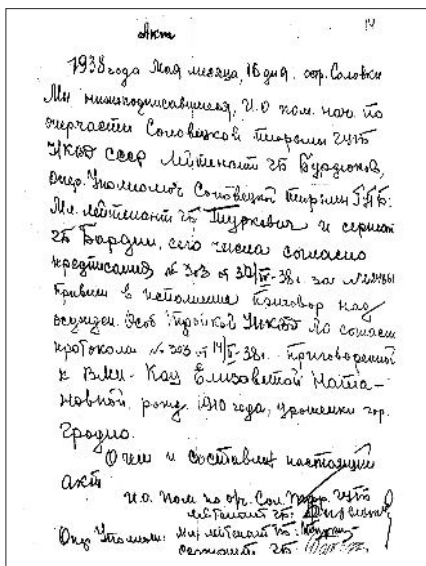 14
Акт
1938 года Мая месяца, 16 дня. гор. Соловки
Мы нижеподписавшиеся, И.О пом. нач. по
оперчасти Соловецкой тюрьмы ГУГБ
НКВД СССР Лейтенант ГБ Бурдюков,
Опер. Уполномоч Соловецкой тюрьмы ГУГБ:
Мл. лейтенант ГБ Туркевич и сержант
ГБ Бардин, сего числа согласно
предписания № 303 от -38г. за №
привели в исполнение приговор над
осужден. Особ тройкой УНКВД ЛО согласн
протокола № 303 от 14/ -38г. приговоренной
к ВМН - Кац Елизаветой Ната-
новной, рожд. 1910 года, уроженки гор.
Гродно.
О чем и составлен настоящий
акт
и.о. пом по оп. Сол. тюр. ГУГБ
лейтенант ГБ:
Опер Уполном: мл лейтенант ГБ:
сержант ГБ